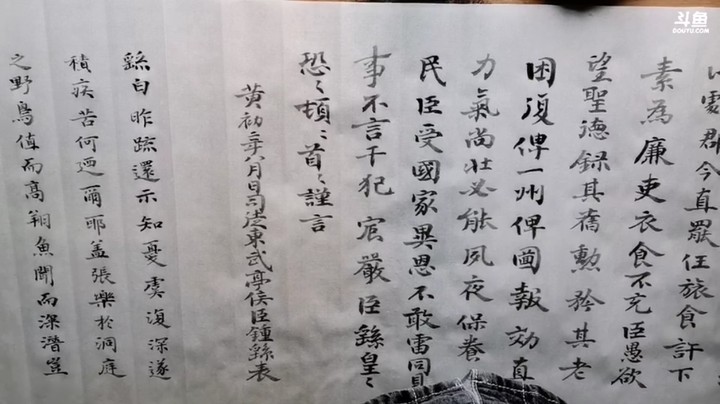 斗鱼
DOUYU.COM
處群今直罷任旅食許下
素為廉吏衣食不充臣愚欲
望聖德錄其舊勳矜其老
困復俾一州俾圖報効直
力氣尚壯必能夙夜保養
民臣受國家異恩不敢雷同見
事不言干犯宸嚴臣繇皇々
恐々頓々首々謹言
黃初二年八月日司徒東武亭侯臣鍾繇表
繇白昨疏還示知憂虞復深遂
積疾苦何迺爾耶蓋張樂於洞庭
之野鳥值而高翔魚聞而深潛豈